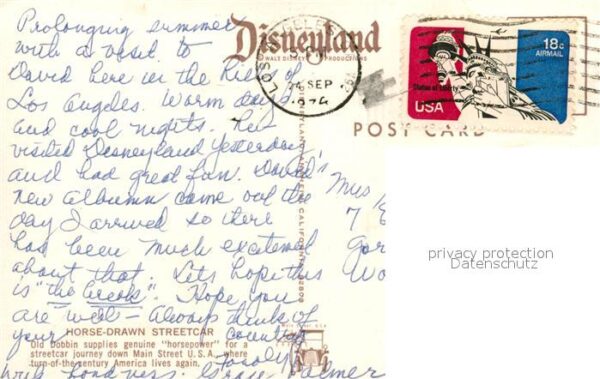 Prolonging summer
with a visit to
David here in the Hills of
Los Angeles. Warm days
and cool nights.
visited Disneyland yesterday
and had great fun. David's
new albumn came out the
day I arrived so there
had been much excitement
about that. Lets hope this
is "the break". Hope you
are well - Always think of
your country
fondly
with fondness. Grace Palmer
Disneyland
WALT DISNEY PRODUCTIONS
SEP
1974
18c
AIRMAIL
Statue of Liberty
USA
POST CARD
Mrs
7
Gor
Wo
privacy protection
Datenschutz
HORSE-DRAWN STREETCAR
Old Dobbin supplies genuine "horsepower" for a
streetcar journey down Main Street U.S.A. where
turn-of-the-century America lives again.